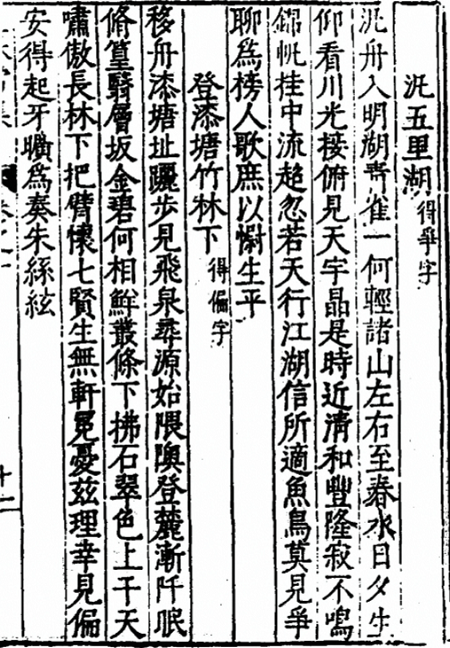 汎五里湖 得爭字
汎舟入明湖青雀一何輕諸山左右至春水日夕生
仰看川光接俯見天宇晶是時近清和豐隆寂不鳴
錦帆挂中流趂忽若天行江湖信所適魚鳥莫見爭
聊為榜人歌庶以慰生平
登漆塘竹林下 得偏字
移舟漆塘址躧步見飛泉尋源始隈隩登麓漸阡眠
脩篁翳層坂金碧何相鮮叢條下拂石翠色上干天
嘯傲長林下把臂懷七賢生無軒冕憂茲理幸見偏
安得起牙曠為奏朱絲絃
十二